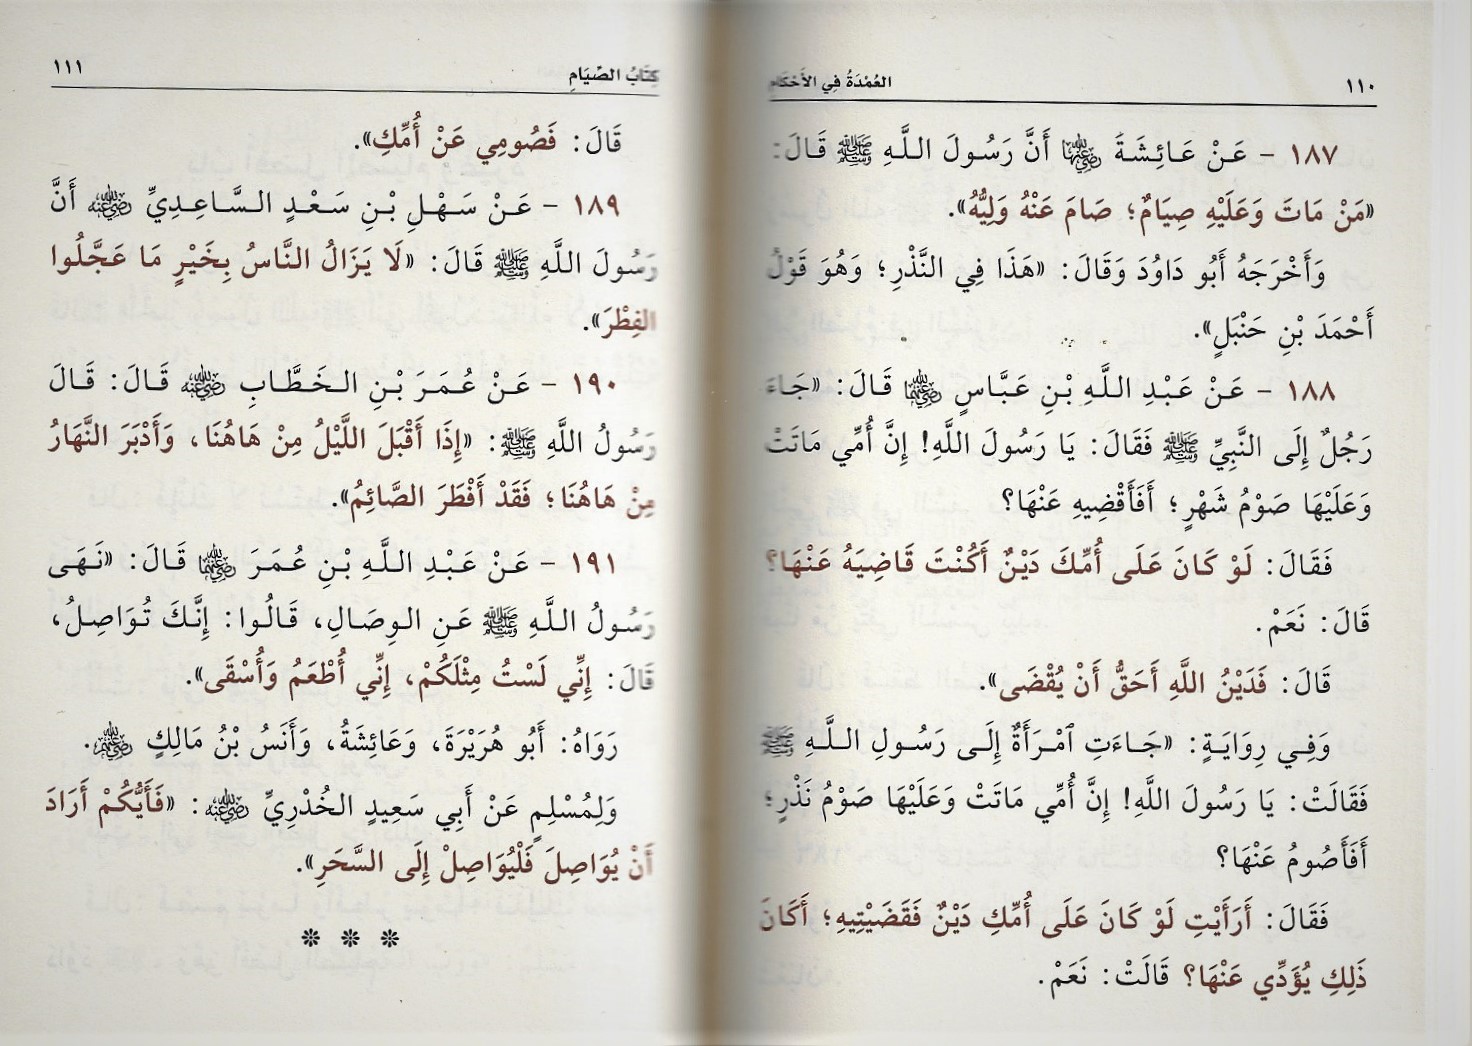 ١١٠ العُمْدَةُ فِي الأَحْكَامِ
١٨٧ - عَنْ عَائِشَةَ رضي الله عنها أَنَّ رَسُولَ اللَّهِ ﷺ قَالَ:
«مَنْ مَاتَ وَعَلَيْهِ صِيَامٌ؛ صَامَ عَنْهُ وَلِيُّهُ».
وَأَخْرَجَهُ أَبُو دَاوُدَ وَقَالَ: «هَذَا فِي النَّذْرِ؛ وَهُوَ قَوْلُ
أَحْمَدَ بْنِ حَنْبَلٍ».
١٨٨ - عَنْ عَبْدِ اللَّهِ بْنِ عَبَّاسٍ رضي الله عنهما قَالَ: «جَاءَ
رَجُلٌ إِلَى النَّبِيِّ ﷺ فَقَالَ: يَا رَسُولَ اللَّهِ! إِنَّ أُمِّي مَاتَتْ
وَعَلَيْهَا صَوْمُ شَهْرٍ؛ أَفَأَقْضِيهِ عَنْهَا؟
فَقَالَ: لَوْ كَانَ عَلَى أُمِّكَ دَيْنٌ أَكُنْتَ قَاضِيَهُ عَنْهَا؟
قَالَ: نَعَمْ.
قَالَ: فَدَيْنُ اللَّهِ أَحَقُّ أَنْ يُقْضَى».
وَفِي رِوَايَةٍ: «جَاءَتِ ٱمْرَأَةٌ إِلَى رَسُولِ اللَّهِ ﷺ
فَقَالَتْ: يَا رَسُولَ اللَّهِ! إِنَّ أُمِّي مَاتَتْ وَعَلَيْهَا صَوْمُ نَذْرٍ؛
أَفَأَصُومُ عَنْهَا؟
فَقَالَ: أَرَأَيْتِ لَوْ كَانَ عَلَى أُمِّكِ دَيْنٌ فَقَضَيْتِيهِ؛ أَكَانَ
ذَلِكِ يُؤَدِّي عَنْهَا؟ قَالَتْ: نَعَمْ.
كِتَابُ الصِّيَامِ ١١١
قَالَ: فَصُومِي عَنْ أُمِّكِ».
١٨٩ - عَنْ سَهْلِ بْنِ سَعْدٍ السَّاعِدِيِّ رضي الله عنه أَنَّ
رَسُولَ اللَّهِ ﷺ قَالَ: «لَا يَزَالُ النَّاسُ بِخَيْرٍ مَا عَجَّلُوا
الفِطْرَ».
١٩٠ - عَنْ عُمَرَ بْنِ الخَطَّابِ رضي الله عنه قَالَ: قَالَ
رَسُولُ اللَّهِ ﷺ: «إِذَا أَقْبَلَ اللَّيْلُ مِنْ هَاهُنَا، وَأَدْبَرَ النَّهَارُ
مِنْ هَاهُنَا؛ فَقَدْ أَفْطَرَ الصَّائِمُ».
١٩١ - عَنْ عَبْدِ اللَّهِ بْنِ عُمَرَ رضي الله عنهما قَالَ: «نَهَى
رَسُولُ اللَّهِ ﷺ عَنِ الوِصَالِ، قَالُوا: إِنَّكَ تُوَاصِلُ،
قَالَ: إِنِّي لَسْتُ مِثْلَكُمْ، إِنِّي أُطْعَمُ وَأُسْقَى».
رَوَاهُ: أَبُو هُرَيْرَةَ، وَعَائِشَةُ، وَأَنَسُ بْنُ مَالِكٍ رضي الله عنهم.
وَلِمُسْلِمٍ عَنْ أَبِي سَعِيدٍ الخُدْرِيِّ رضي الله عنه: «فَأَيُّكُمْ أَرَادَ
أَنْ يُوَاصِلَ فَلْيُوَاصِلْ إِلَى السَّحَرِ».